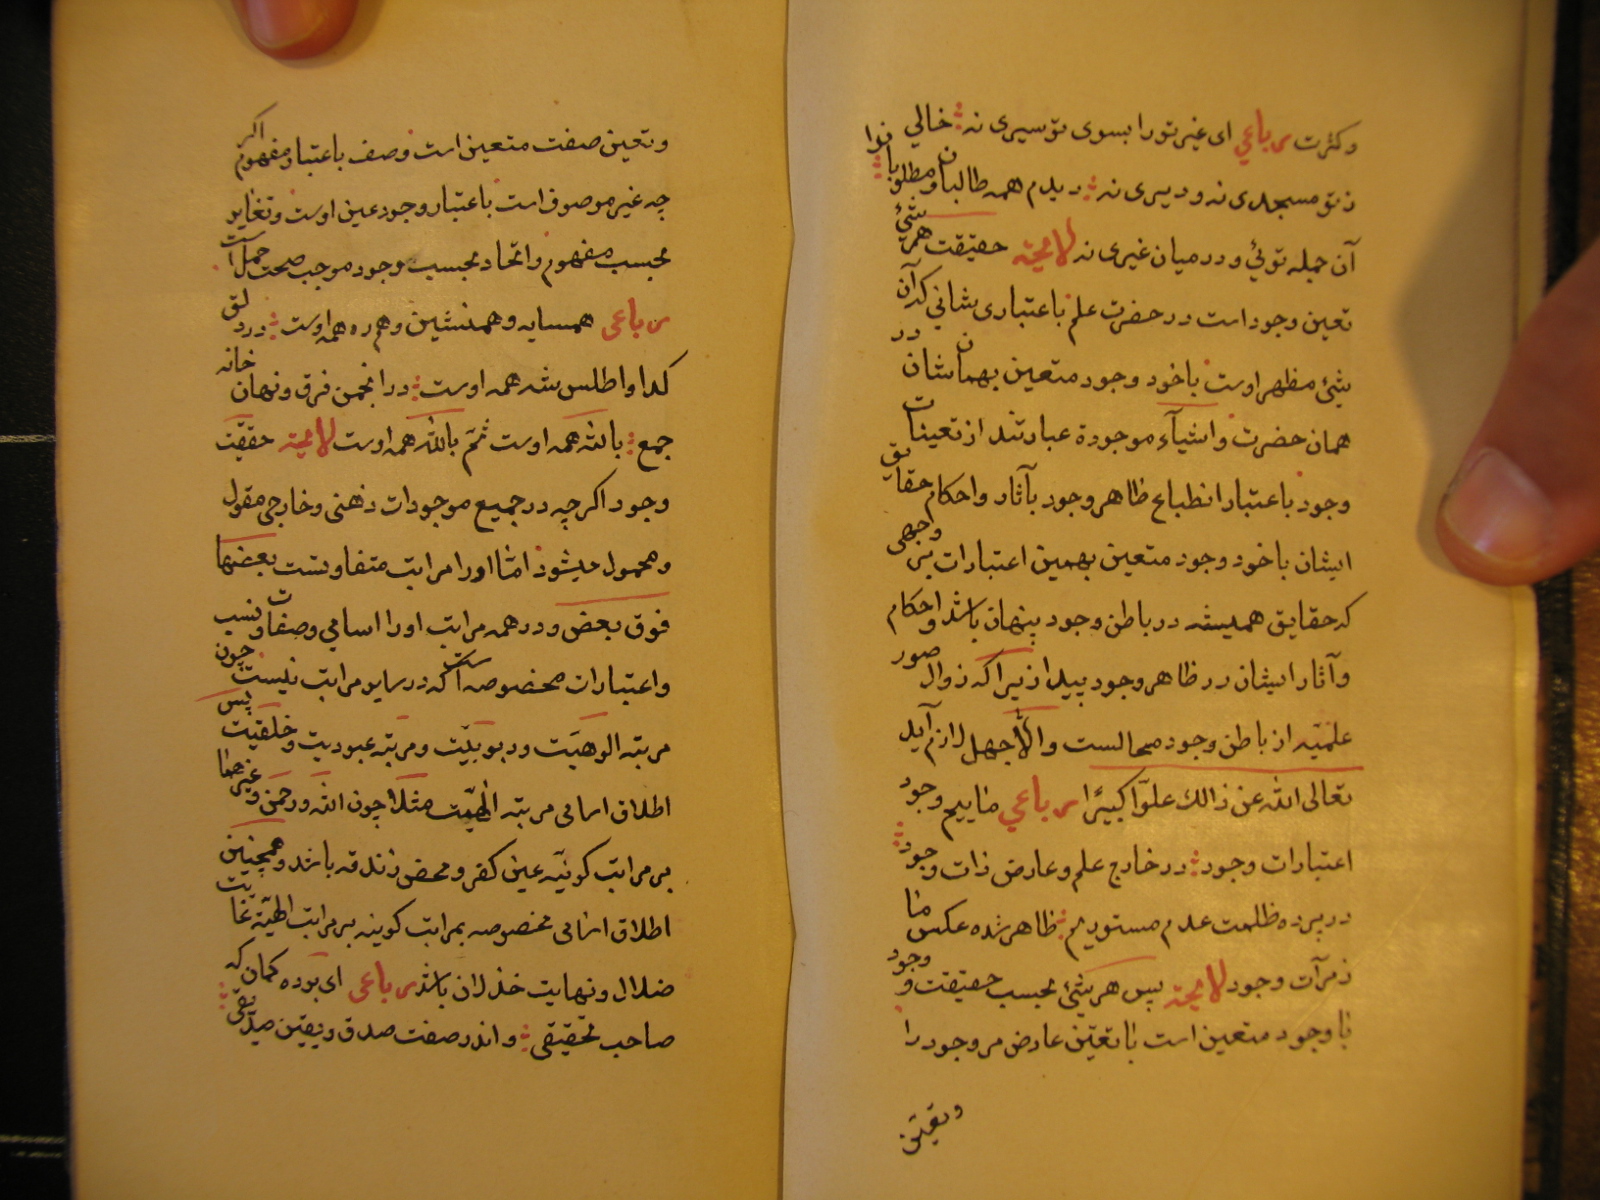 وکثرت رباعي ای غیر تو را بسوی تو سیری نه خالي
ز تو مسجدی نه و دیری نه دیدم همه طالبان ومطلوبانرا
آن جمله توئي و در میان غیری نه لائحته حقیقت هر شئ
تعین وجود است در حضرت علم باعتباری شانی که آن
شئ مظهر اوست یا خود وجود متعین بهمان شان در
همان حضرت واشیآء موجوده عبارتند از تعینات
وجود باعتبار انطباع ظاهر وجود بآثار واحکام حقایق
ایشان یا خود وجود متعین بهمین اعتبارات بر وجهی
که حقایق همیشه در باطن وجود پنهان باشد واحکام
وآثار ایشان در ظاهر وجود پیدا زیرا که زوال صور
علمیّه از باطن وجود محالست والّا جهل لازم آید
تعالی الله عن ذالك علوّا کبیرًا رباعي ماییم وجود
اعتبارات وجود در خارج علم وعارض ذات وجود
در پرده ظلمت عدم مستوریم ظاهر شده عکس ما
ز مرآت وجود لائحته پس هر شئ بحسب حقیقت و
یا وجود متعین است یا تعیّن عارض مر وجود را
وتعیّن
وتعین صفت متعین است وصف باعتبار مفهوم اکر
چه غیر موصوف است باعتبار وجود عین اوست وتغایر
بحسب مفهوم واتحاد بحسب وجود موجب صحت حمل است
رباعی همسایه وهمنشین وهمره همه اوست در دلق
کدا واطلس شه همه اوست در انجمن فرق ونهان خانه
جمع بالله همه اوست ثمّ بالله همه اوست لائحته حقیقت
وجود اکرچه در جمیع موجودات ذهنی وخارجی مقول
ومحمول میشود امّا او را مراتب متفاوتست بعضها
فوق بعض ودر همه مراتب او را اسامي وصفات ونسب
واعتبارات مخصوصه است که در سایر مراتب نیست چون
مرتبه الوهیّت وربوبیّت ومرتبه عبودیت وخلقیت پس
اطلاق اسامی مرتبه الٰهیّت مثلا چون الله ورحمن وغیرهما
بر مراتب کونیّه عین کفر ومحض زندقه باشد وهمچنین
اطلاق اسامی مخصوصه بمراتب کونیه بر مراتب الهیّه غایت
ضلال ونهایت خذلان باشد رباعی ای بوده کمان که
صاحب تحقیقی واندر صفت صدق ویقین صدّیقی